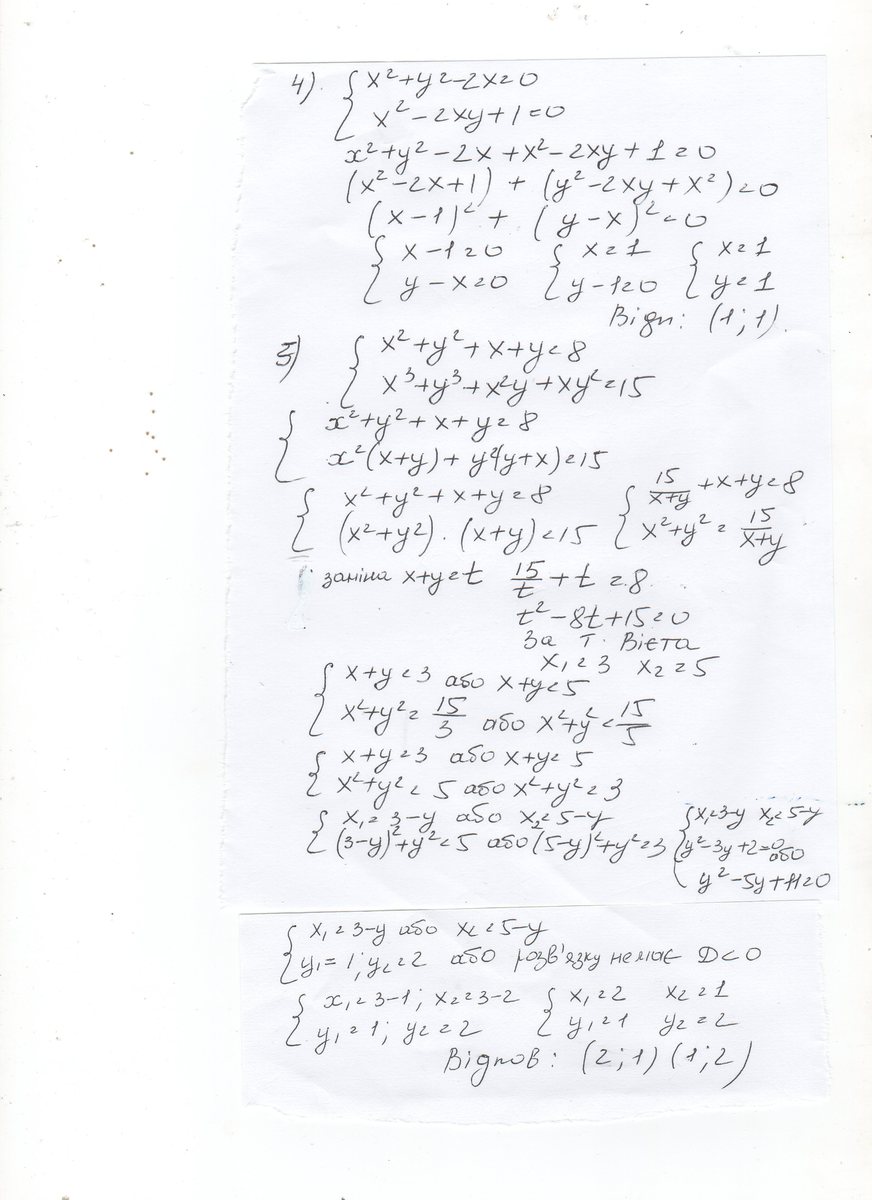 4). { x² + y² - 2x = 0
x² - 2xy + 1 = 0
x² + y² - 2x + x² - 2xy + 1 = 0
(x² - 2x + 1) + (y² - 2xy + x²) = 0
(x - 1)² + (y - x)² = 0
{ x - 1 = 0 { x = 1 { x = 1
y - x = 0 y - 1 = 0 y = 1
Відп: (1; 1).
5) { x² + y² + x + y = 8
x³ + y³ + x²y + xy² = 15
{ x² + y² + x + y = 8
x²(x+y) + y²(y+x) = 15
{ x² + y² + x + y = 8 { 15/(x+y) + x + y = 8
(x² + y²) · (x+y) = 15 x² + y² = 15/(x+y)
заміна x+y = t 15/t + t = 8
t² - 8t + 15 = 0
За т. Вієта
x₁ = 3 x₂ = 5
{ x + y = 3 або x + y = 5
x² + y² = 15/3 або x² + y² = 15/5
{ x + y = 3 або x + y = 5
x² + y² = 5 або x² + y² = 3
{ x₁ = 3 - y або x₂ = 5 - y { x₁ = 3 - y x₂ = 5 - y
(3-y)² + y² = 5 або (5-y)² + y² = 3 y² - 3y + 2 = 0 або
y² - 5y + 11 = 0
{ x₁ = 3 - y або x₂ = 5 - y
y₁ = 1; y₂ = 2 або розв'язку немає D < 0
{ x₁ = 3 - 1; x₂ = 3 - 2 { x₁ = 2 x₂ = 1
y₁ = 1; y₂ = 2 y₁ = 1 y₂ = 2
Відпов: (2; 1) (1; 2)